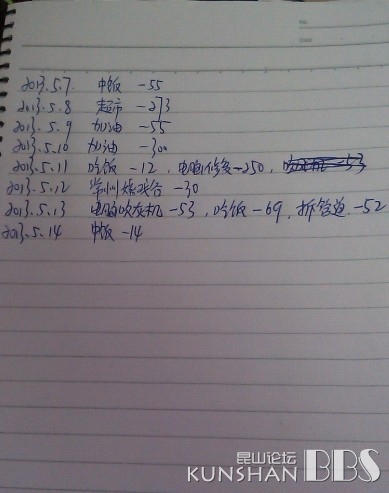 2013.5.7. 中饭 -55
2013.5.8 超市 -273
2013.5.9 加油 -55
2013.5.10 加油 -300
2013.5.11 吃饭 -12, 电脑修复-250,
2013.5.12 常州嬉戏谷 -30
2013.5.13 电脑吹灰机 -53, 吃饭 -69, 拆管道 -52
2013.5.14 中饭 -14
昆山论坛
KUNSHAN BBS